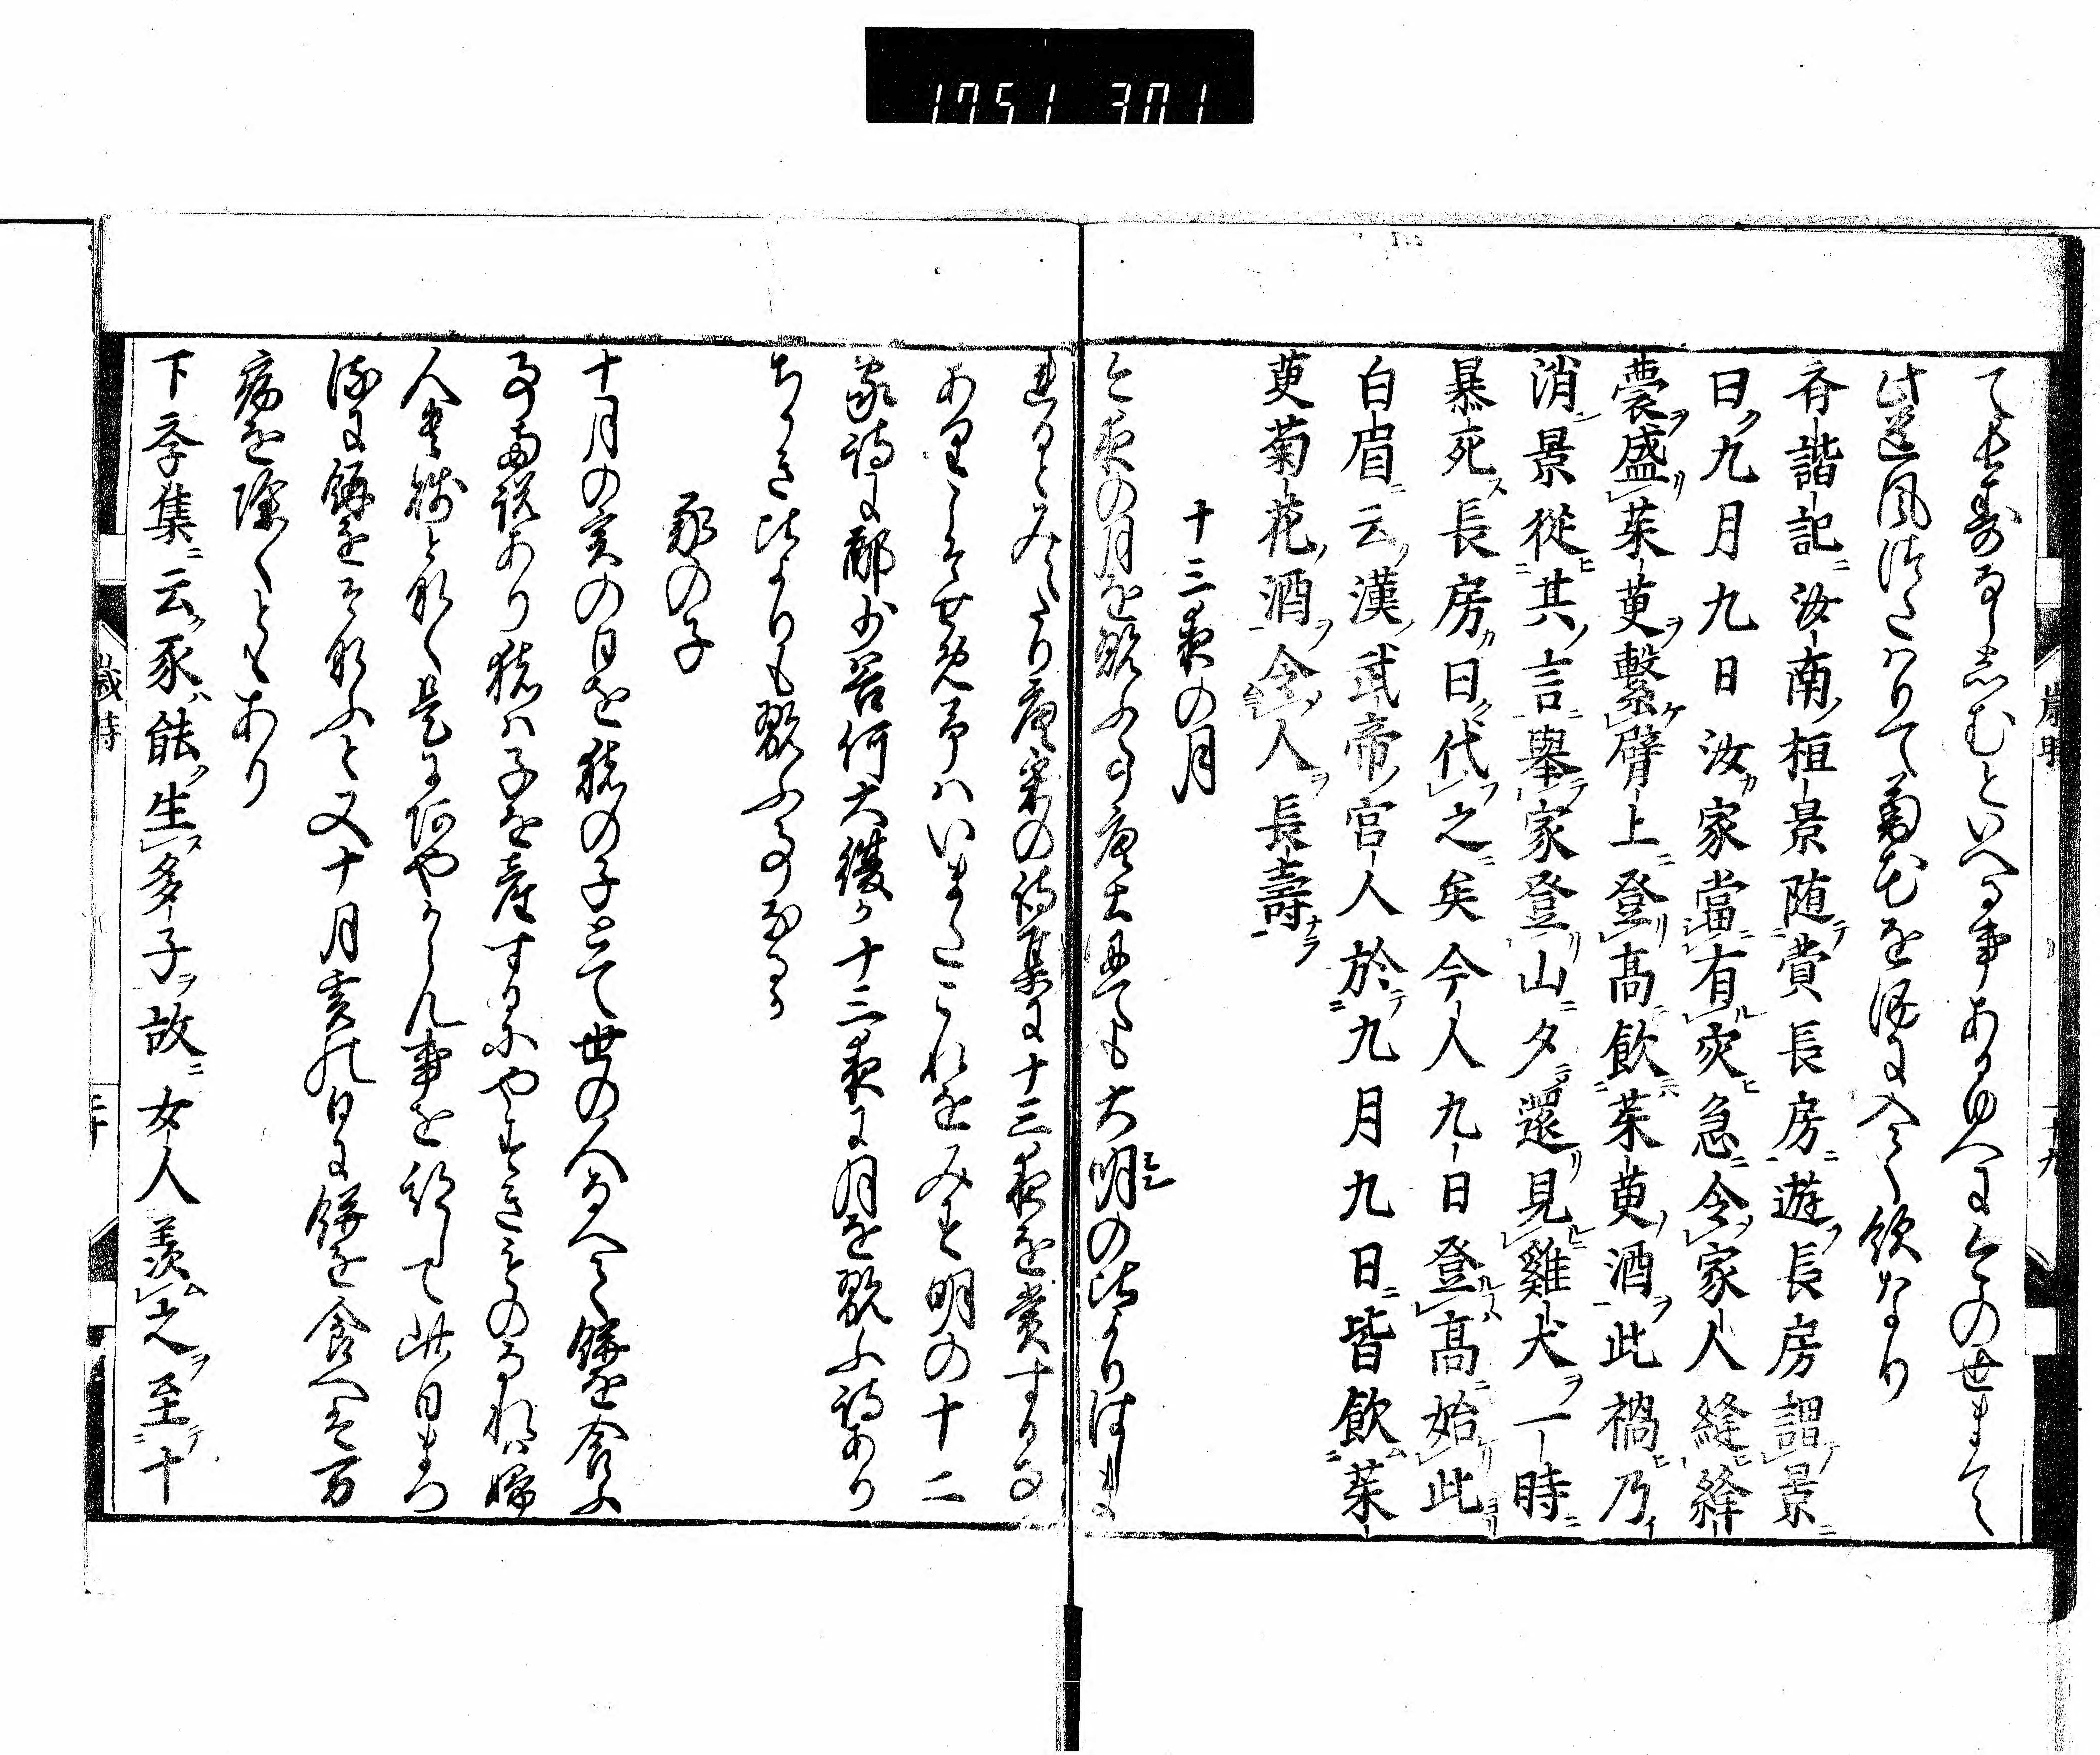 1751 301
て長寿ならしむといへる事あるゆへに今の世まて
此遺風つたハりて菊花を酒に入て飲なり
斉諧記ニ汝南ノ桓景随テ費長房ニ遊フ長房謂テ景ニ
日ク九月九日汝カ家當ニ有ル灾ヒ急ニ令テ家人縫ヒ絳
囊ヲ盛リ茱萸ヲ繋ケ臂上ニ登リ髙ニ飲茱萸ノ酒ヲ此禍ヒ乃イ
消ン景従ヒ其ノ言ニ擧テ家登リ山ニ夕ニ還リ見ルニ雞犬ヲ一時ニ
暴死ス長房カ曰ク代フ之ニ矣今人九日登ルヿハ髙ニ始リ此ヨリ
白眉ニ云ク漢ノ武帝ノ宮人於テ九月九日ニ皆飲ム茱
萸菊花ノ酒ヲ令ム人ヲ長壽ナラ
十三夜の月
今夜の月を翫ふ事唐土にても大明の比よりはしま
れるとみへたり唐宋の詩集に十三夜を賞する事
ありといへとも予ハいまたこれをみす明の十二
家詩に都少谷何大復か十三夜に月を翫ふ詩あり
ちかき比よりも翫ふ事なるか
豕の子
十月の亥の日を猪の子とて世の人なへて餅を食ふ
事両説あり猪ハ子を産するにやすきものなれは婦
人産前となく是にあやからん事を祈りて此日まつ
酒に餅をそなふと又十月亥の日に餅を食へは万
病を除くともあり
下学集ニ云ク豕ハ能ク生ス多子ヲ故ニ女人羨ム之ヲ至テ十
歳時
二十九
歳時
三十